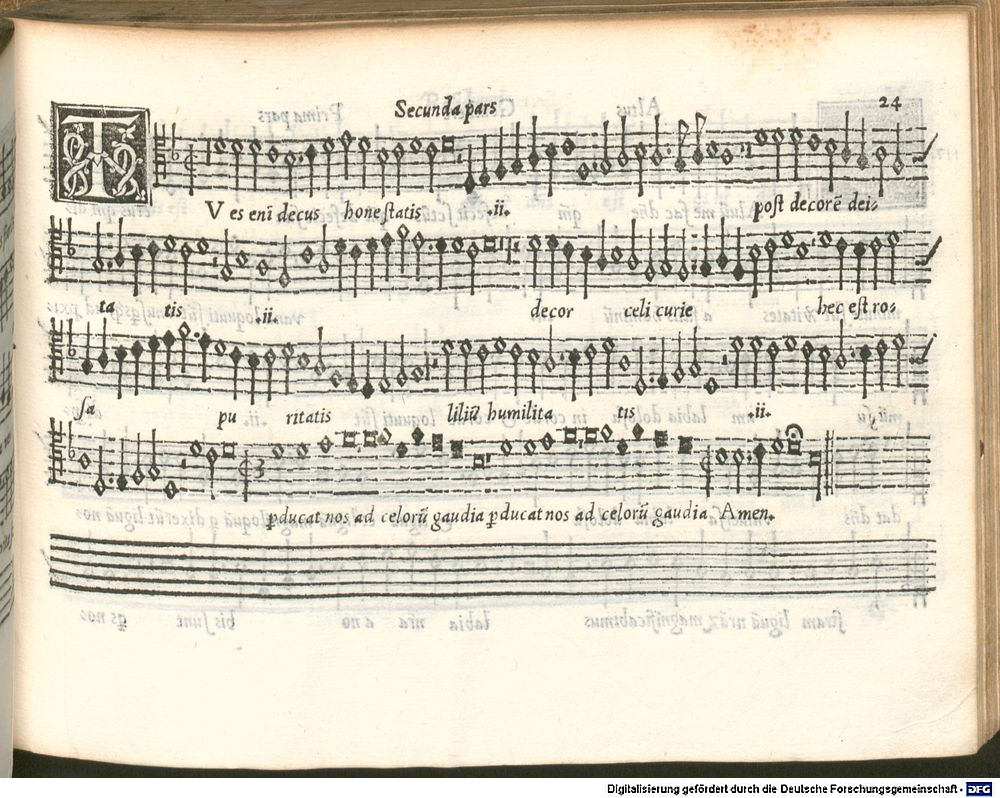 Secunda pars 24
T V es enī decus honestatis .ii. post decorē dei-
ta tis .ii. decor celi curie hec est ro-
sa pu ritatis liliū humilita tis .ii.
ꝑducat nos ad celorū gaudia ꝑducat nos ad celorū gaudia Amen.
Digitalisierung gefördert durch die Deutsche Forschungsgemeinschaft - DFG